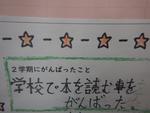 2学期にがんばったこと
学校で本を読む事を
がんばった